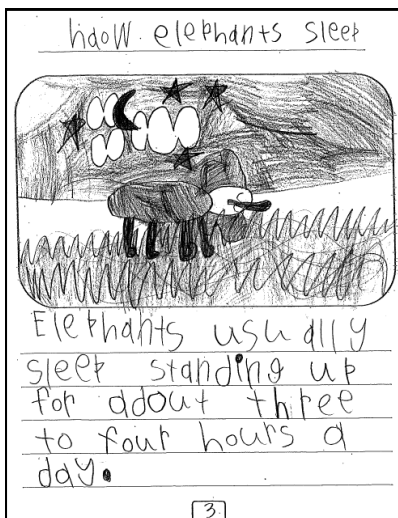 haow elephants sleep
Elephants usually
sleep standing up
for adout three
to four hours a
day.
3